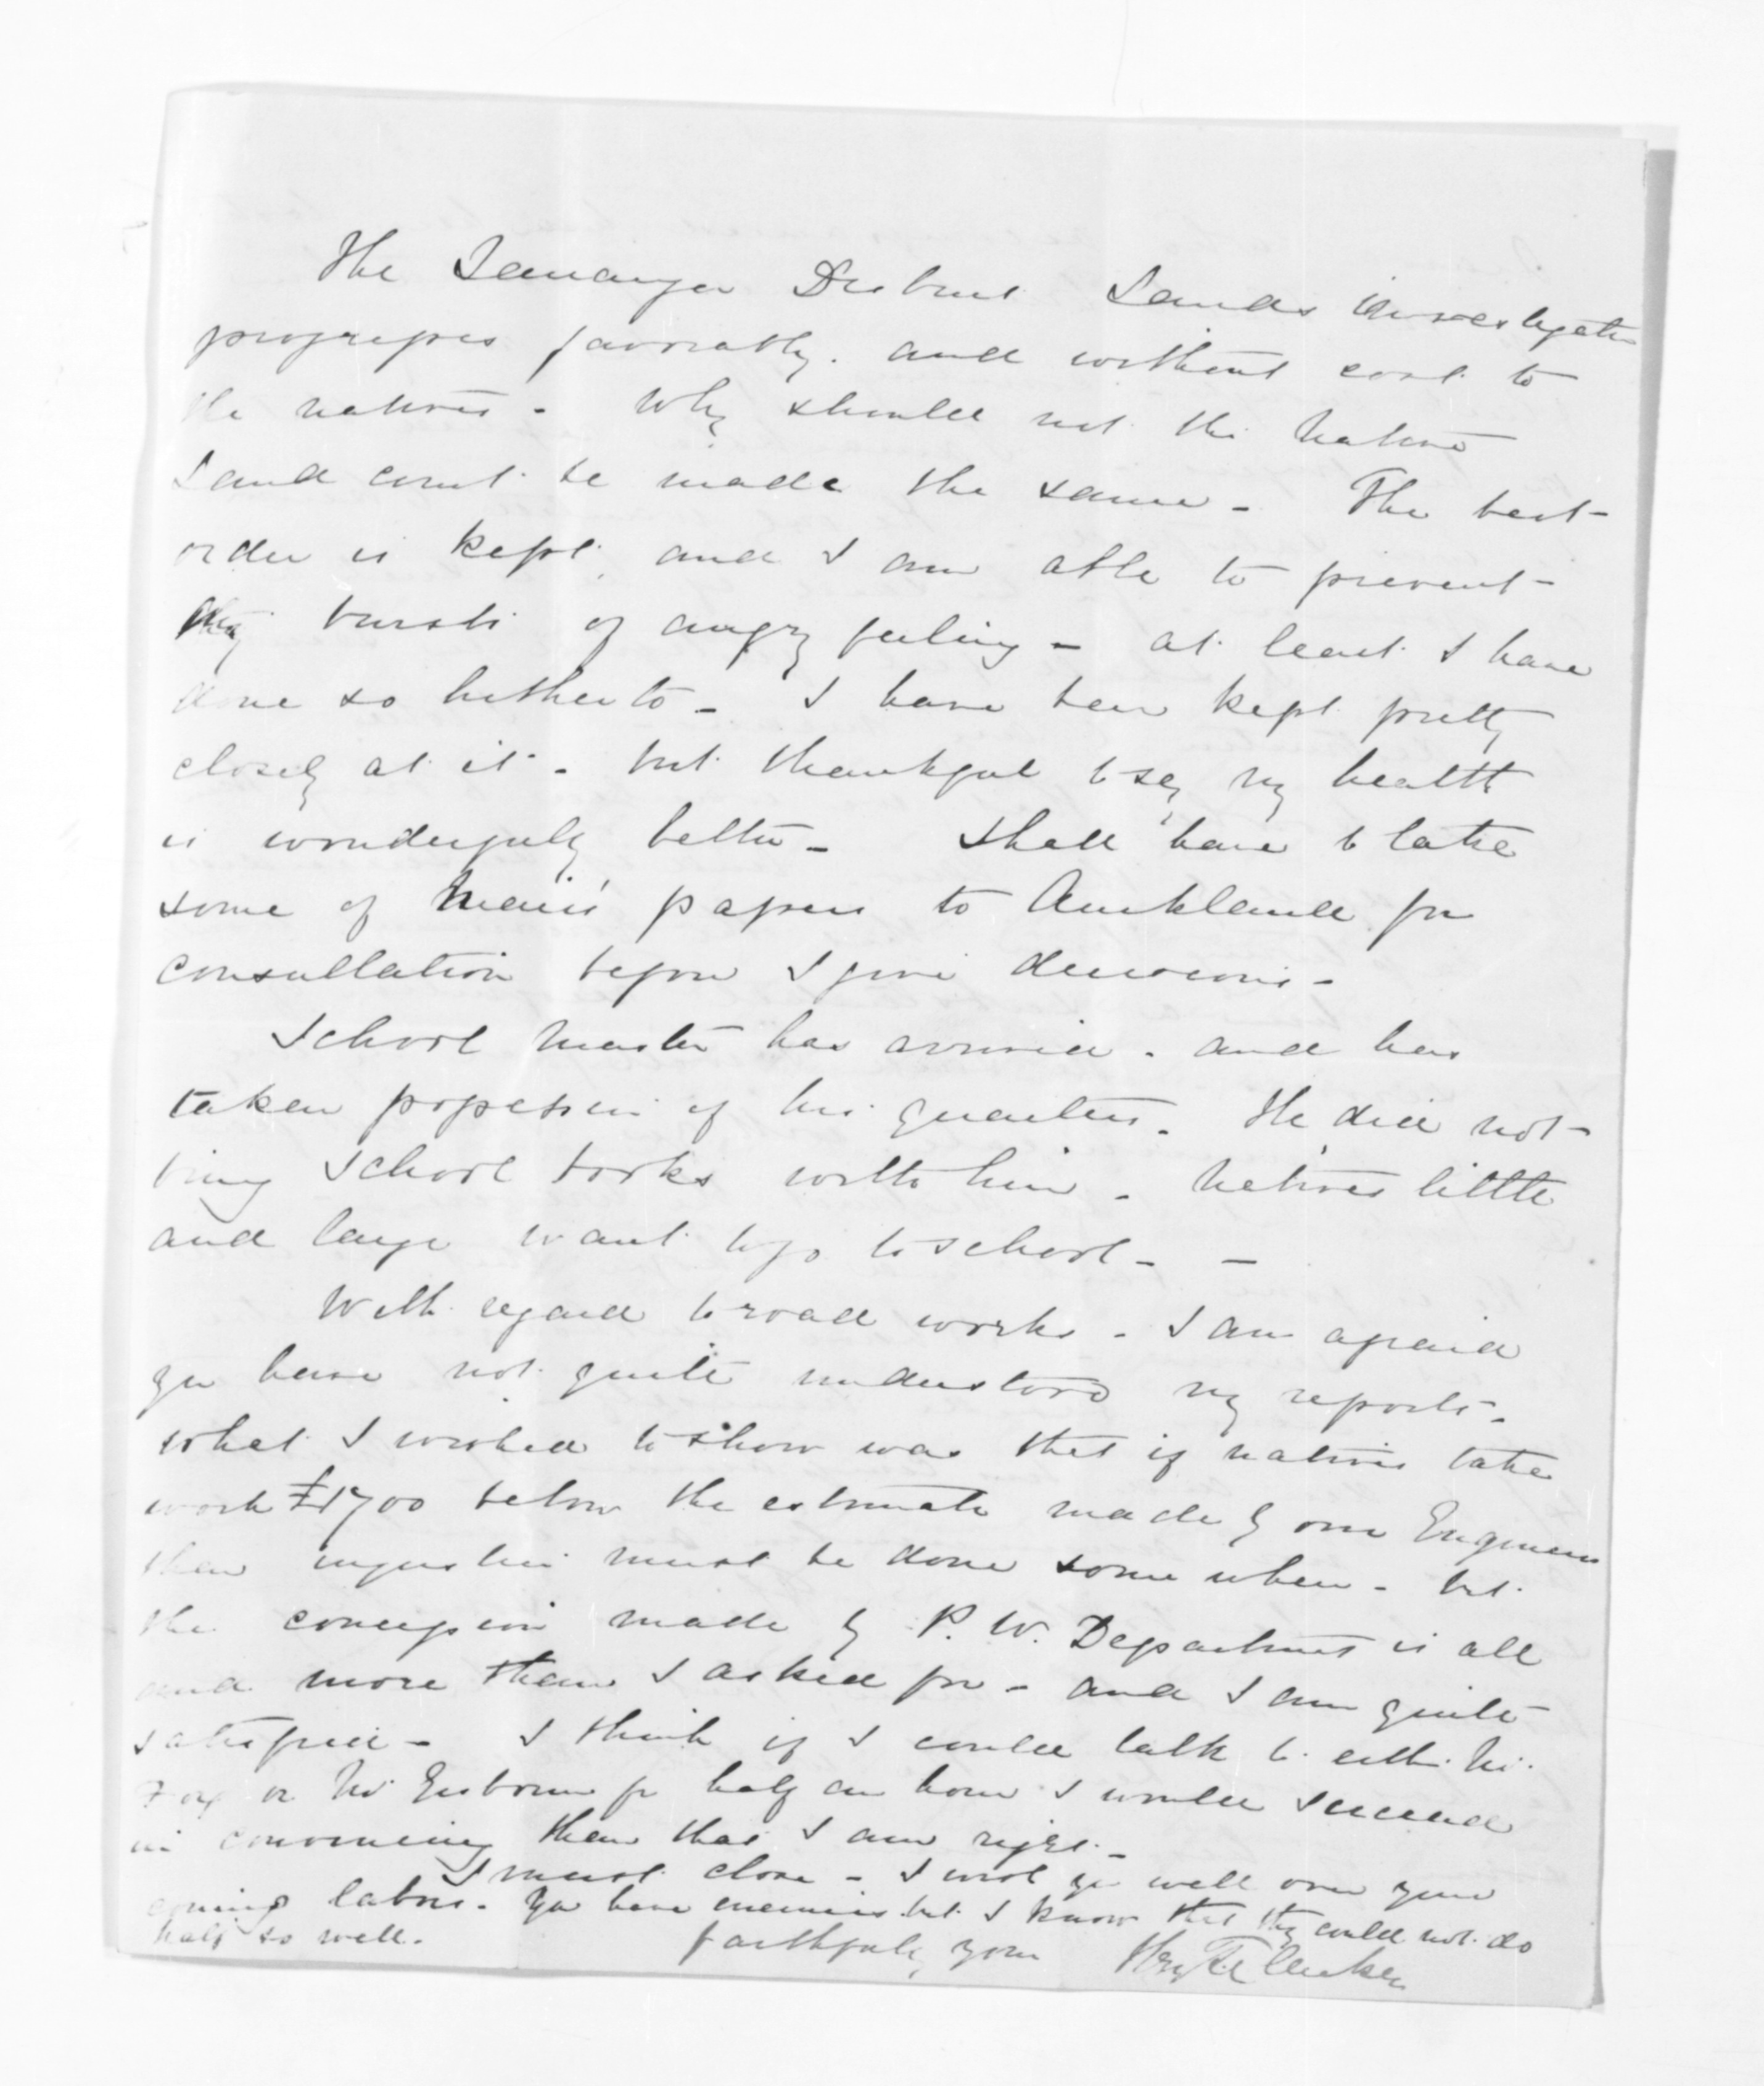 The Tauranga District Lands investigation
progresses favorably. and without cost to
the natives - Why should not the Native
Land court be made the same - The best
order is kept, and I am able to prevent
bursts of angry feeling - at least I have
done so hitherto - I have been kept pretty
closely at it - but thankful to say my health
is wonderfully better - Shall have to take
some of papers to Auckland for
consultation before I give decisions -
School master has arrived. and has
taken possession of his quarters. He did not
bring School books with him - Natives little
and large want to go to school - -
With regard to road works - I am afraid
you have not quite understood my reports.
what I wished to show was that if natives take
work £1700 below the estimate made by our Engineers
then injustice must be done some where - but
the concession made by P. W. Department is all
and more than I asked for - and I am quite
satisfied - I think if I could talk to either Mr.
Fox or Mr Gisborne for half an hour I would succeed
in convincing them that I am right -
I must close - I wish you well over your
coming labors. You have enemies but I know that they could not do
half so well.
faithfully yours Hy T Clarke